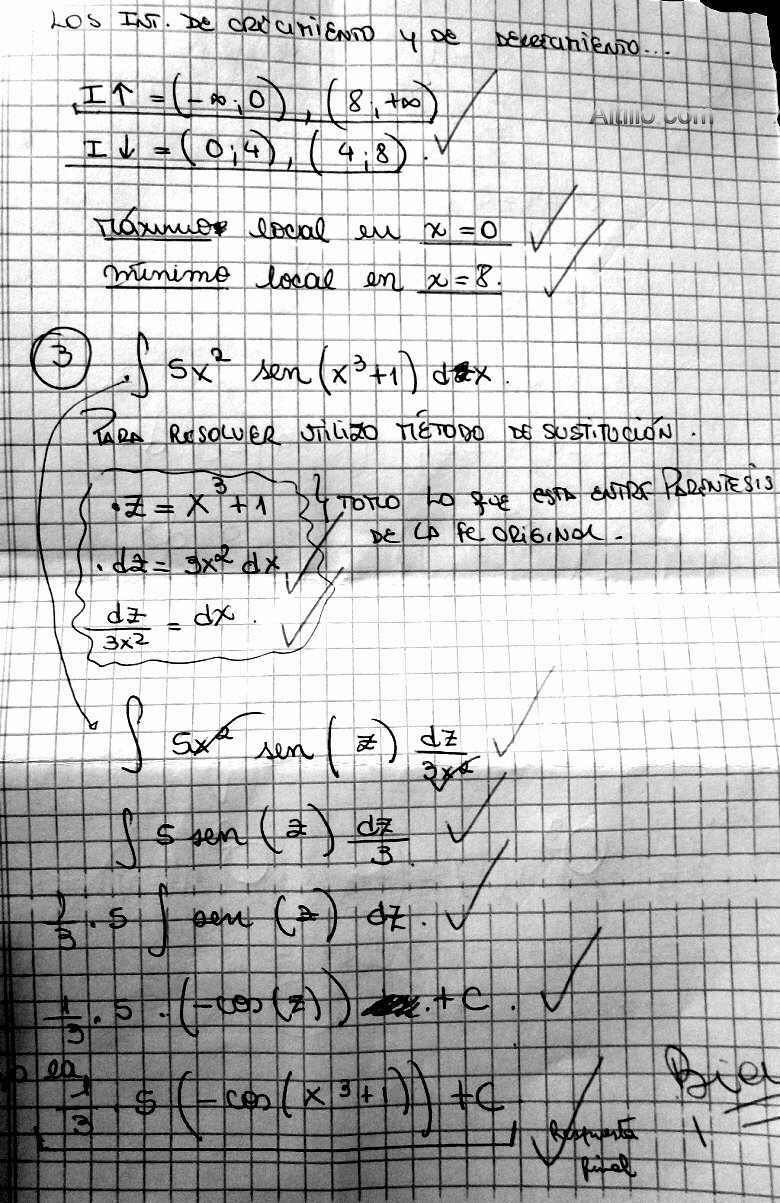 LOS INT. DE CRECIMIENTO Y DE DECRECIMIENTO...
I↑ = (-∞;0), (8,+∞)
Altillo.com
I↓ = (0;4), (4;8).
Máximo local en x=0
mínimo local en x=8.
3
∫ 5x² sen(x³+1) dx.
PARA RESOLVER UTILIZO MÉTODO DE SUSTITUCIÓN.
·z = x³+1 TOMO LO QUE ESTA ENTRE PARENTESIS
DE LA fc ORIGINAL.
·dz = 3x² dx
dz/3x² = dx.
∫ 5x² sen(z) dz/3x²
∫ 5 sen(z) dz/3
1/3 . 5 ∫ sen(z) dz.
1/3 . 5 . (-cos(z)) + C.
1/3 . 5 (-cos(x³+1)) + C
Respuesta
final